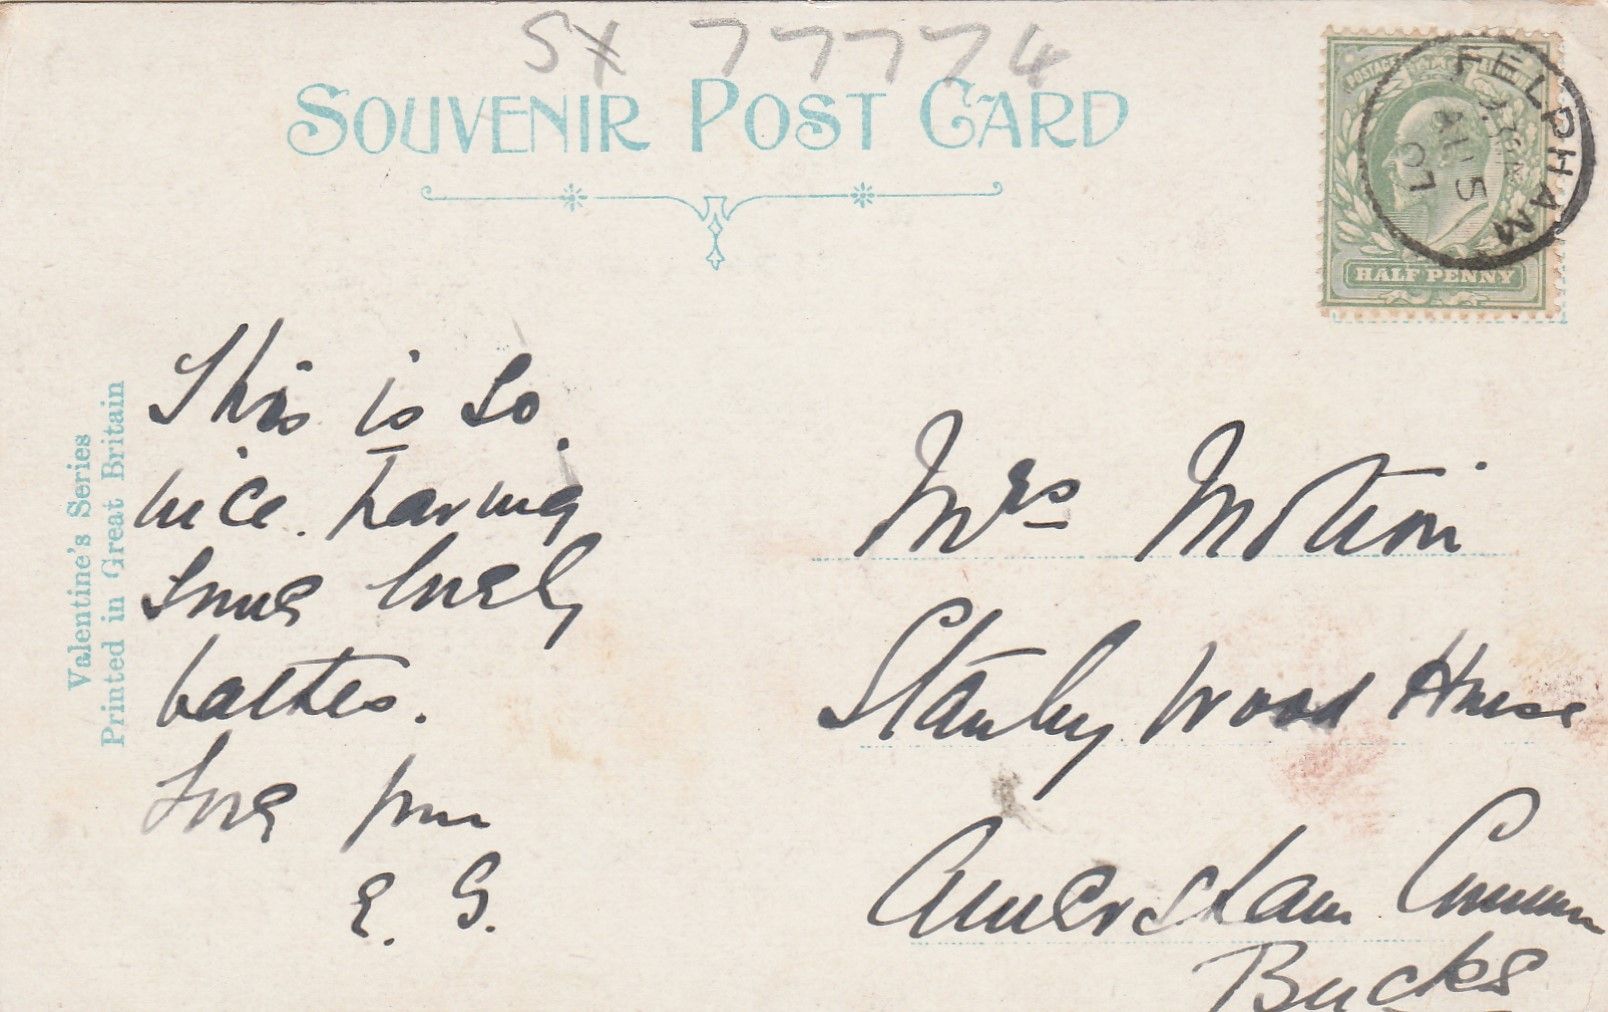 SX 77774
SOUVENIR POST CARD
POSTAGE
HALF PENNY
FELPHAM
AU 5
07
Valentine's Series
Printed in Great Britain
This is so
nice. having
some lovely
bathes.
Love from
E. G.
Mrs Motion
Stanley Wood House
Amersham Common
Bucks